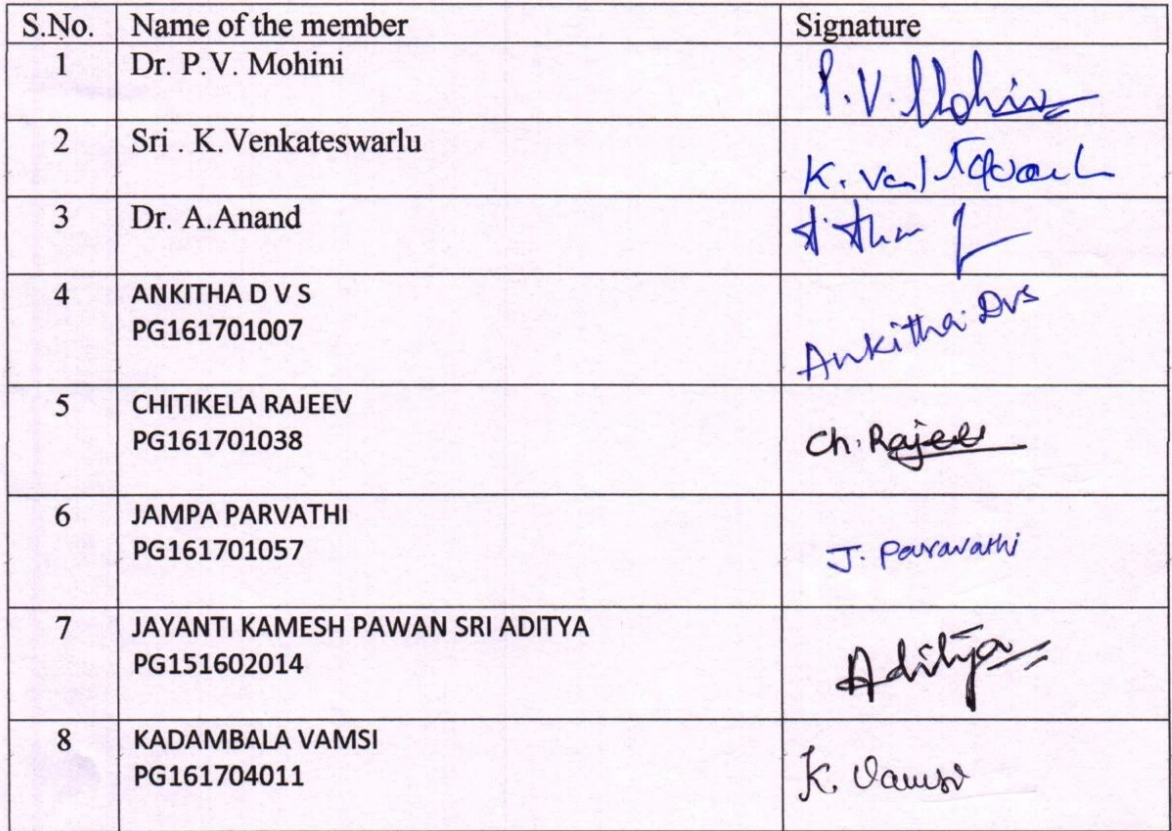 S.No. Name of the member Signature
1 Dr. P.V. Mohini P.V. Mohini
2 Sri . K.Venkateswarlu K.
3 Dr. A.Anand
4 ANKITHA D V S
PG161701007 Ankitha DVS
5 CHITIKELA RAJEEV
PG161701038 Ch. Rajeev
6 JAMPA PARVATHI
PG161701057 J. Pavarathi
7 JAYANTI KAMESH PAWAN SRI ADITYA
PG151602014 Aditya
8 KADAMBALA VAMSI
PG161704011 K. Vamsi